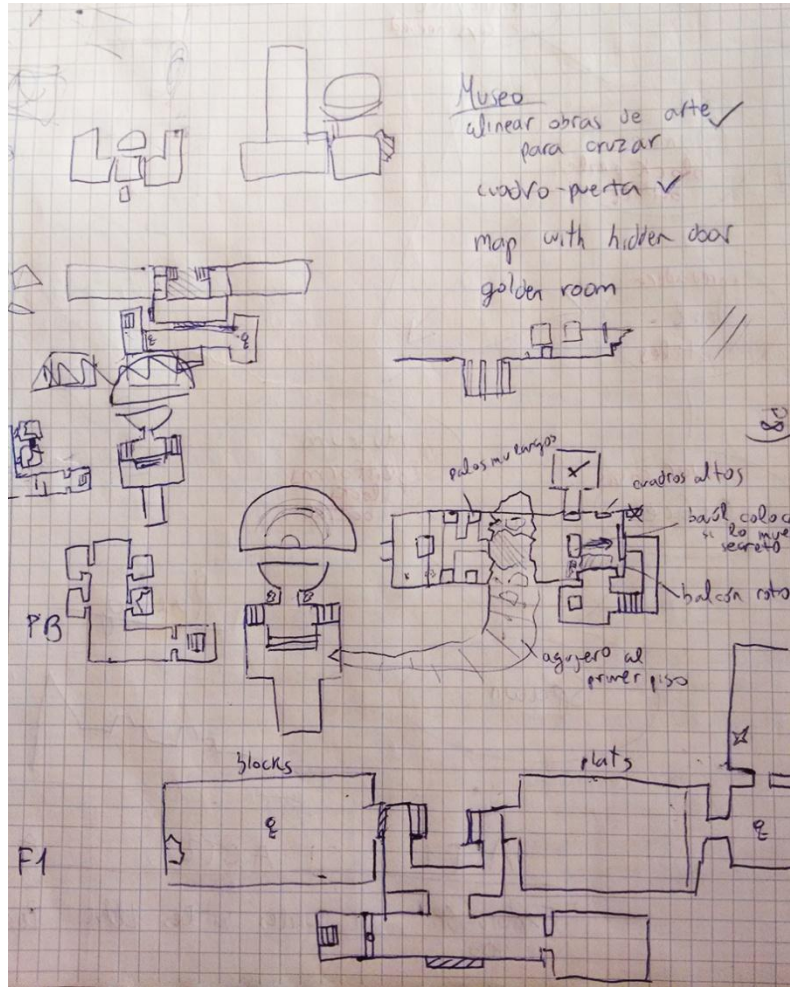 Museo
alinear obras de arte ✓
para cruzar
cuadro-puerta ✓
map with hidden door
golden room
palos muy largos
cuadros altos
baúl coloca
si lo mue
secreto
balcón roto
agujero al
primer piso
PB
blocks
plats
F1